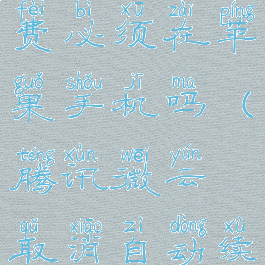 fèi bì xū zài píng
费必须在苹
guǒ shǒu jī ma
果手机吗,(
téng xùn wēi yún
腾讯微云
qǔ xiāo zì dòng xù
取消自动续